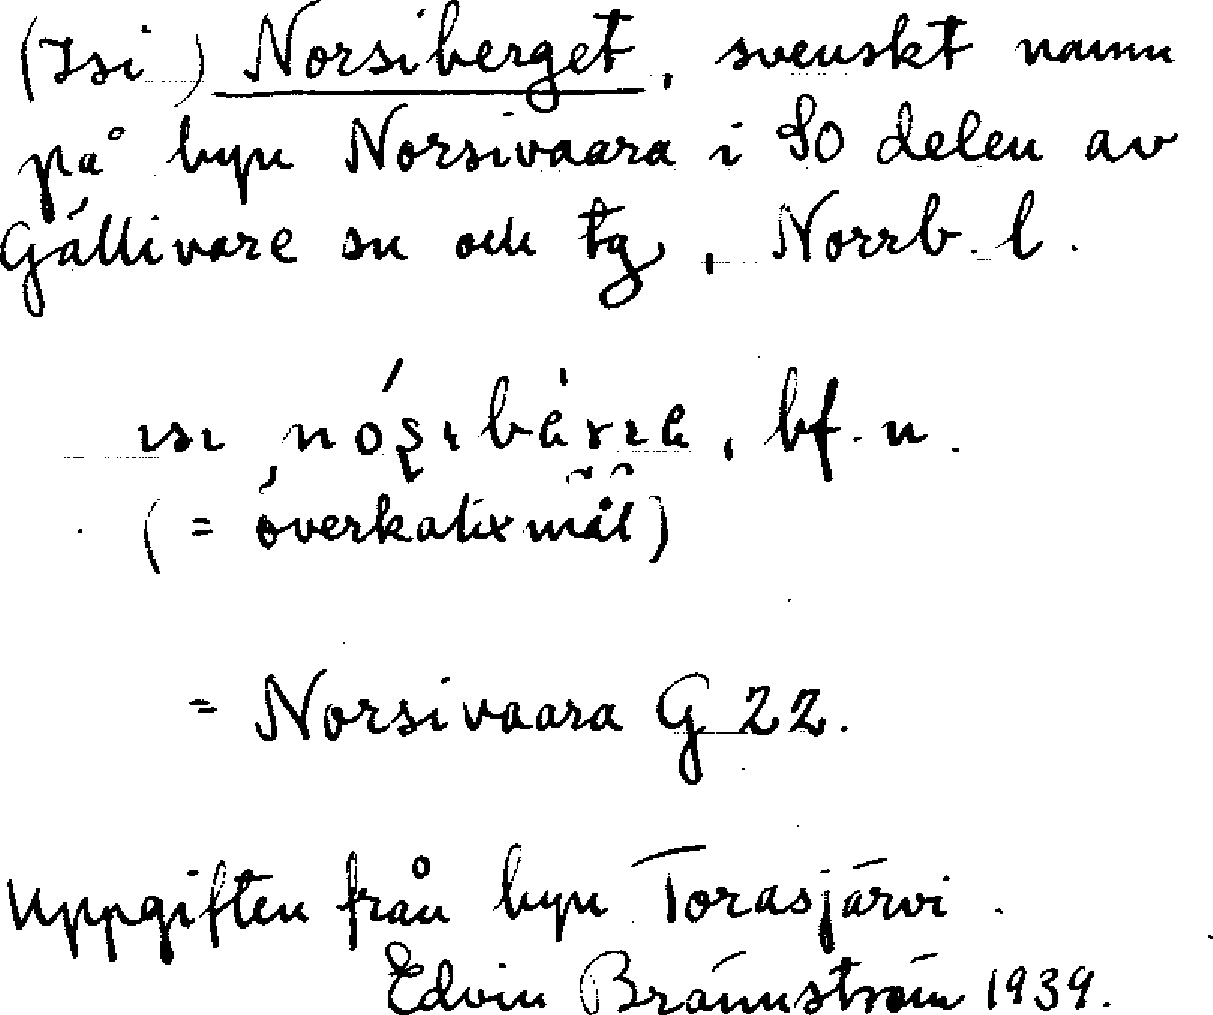 (Isi) Norsiberget, svenskt namn
på byn Norsivaara i SO delen av
Gällivare sn och tg, Norrb. l.
ısı, bf. n.
(= överkalixmål)
= Norsivaara G 22.
Uppgiften från byn Torasjärvi.
Edvin Brännström 1939.